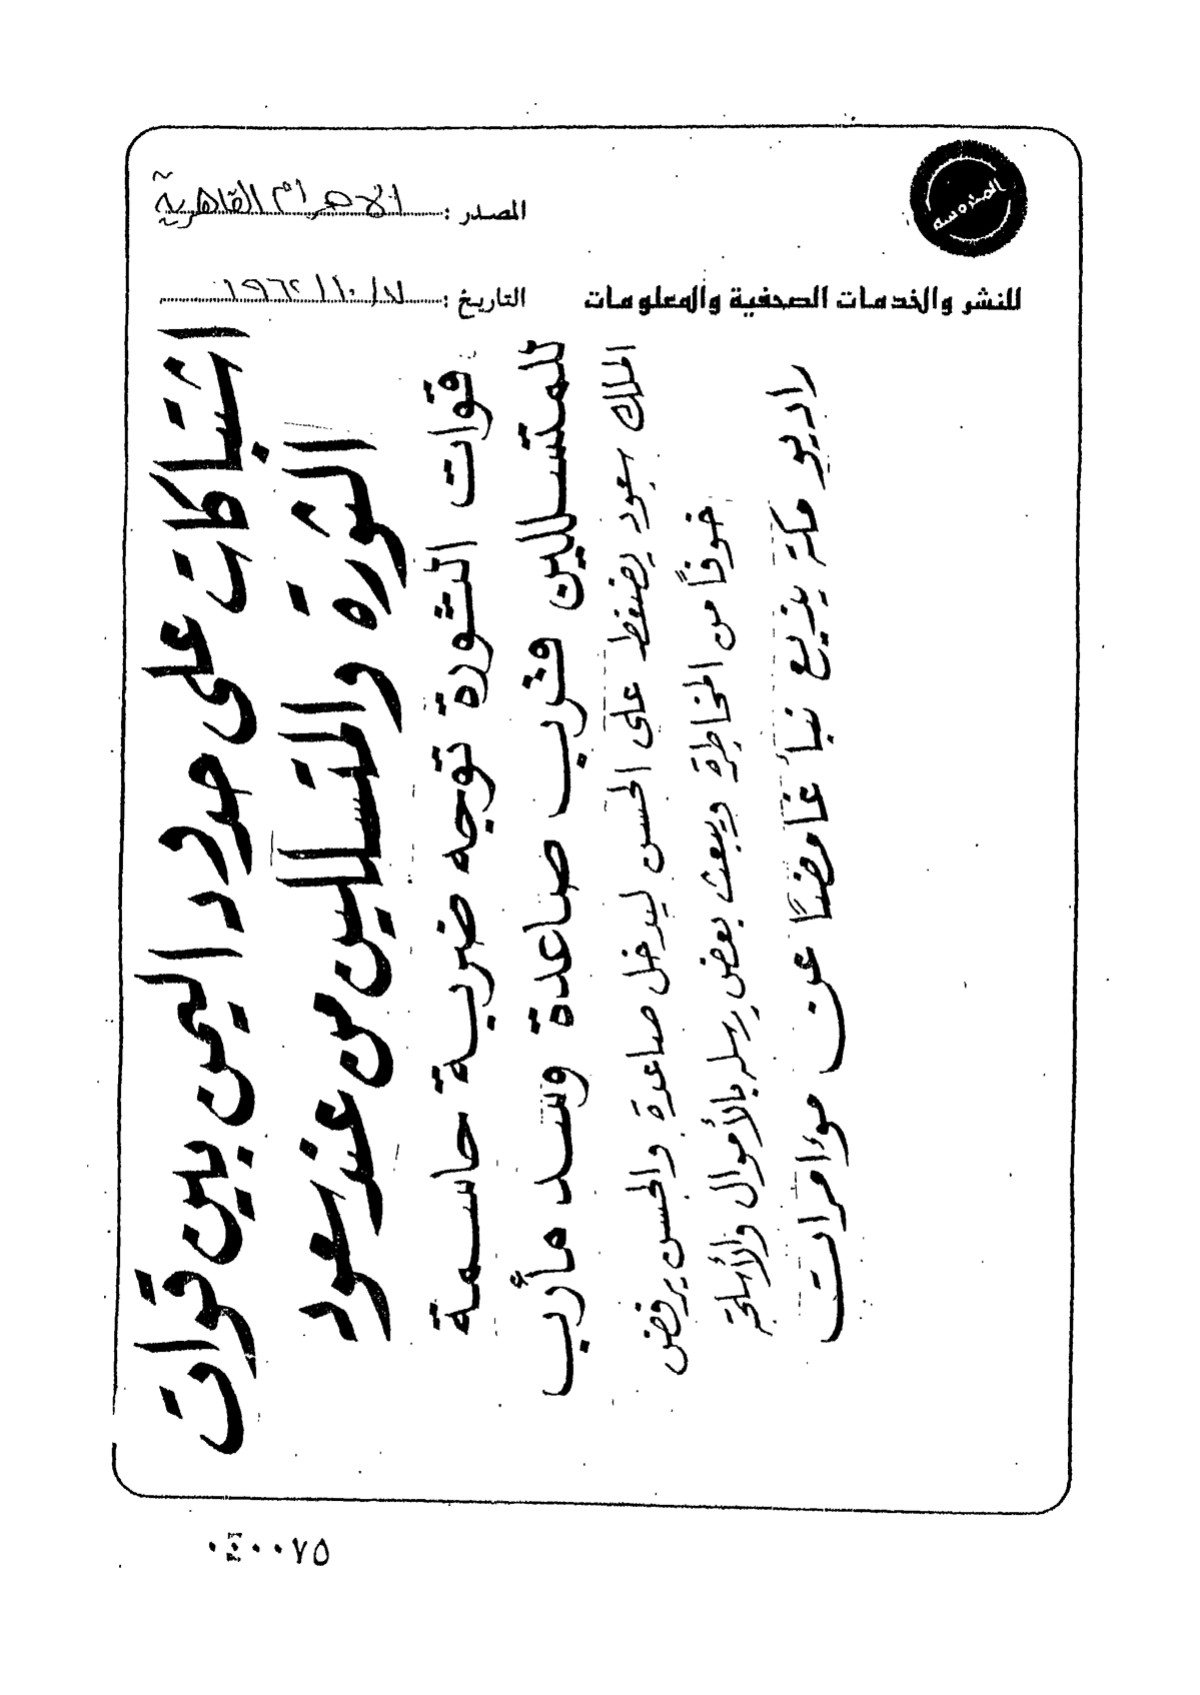 المصدر : الاهرام القاهرية
للنشر والخدمات الصحفية والمعلومات
التاريخ : ٧ / ١٠ / ١٩٦٢
اشتباكات على حدود اليمن بين قوات
الثورة والمتسللين من عند سعود
قوات الثورة توجه ضربة حاسمة
للمتسللين قرب صاعدة وسد مأرب
الملك سعود يضغط على الحسن ليدخل صاعدة والحسن يرفض
خوفاً من المخاطرة ويبعث بعض رسله بالأموال والأسلحة
راديو مكة يذيع نبأ غامضاً عن مؤامرات